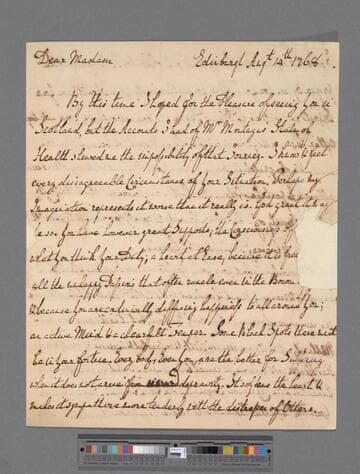 Dear Madam
Edinburgh Augt 14th 1768
By this time I hoped for the Pleasure of seeing you in
Scotland, but the Accounts I had of Mr Montagu's State of
Health shewed me the impossibility of that Journey. I know & feel
every disagreeable Circumstance of your Situation, Perhaps my
Imagination represents it worse than it really is. God grant it may
be so. You have however great Supports; the Consciousness of
what you think your Duty; a heart at Ease, because it is free
all the unhappy Passions that often rankle even in the Bosom
& because you are continually diffusing happiness to all around you;
an active Mind & a chearfull Temper. Some Black Spots there must
be in your fortune. Every body, even you, are the better for Suffering
when it does not arise from depravity. It softens the heart &
makes it sympathise more tenderly with the distresses of Others.